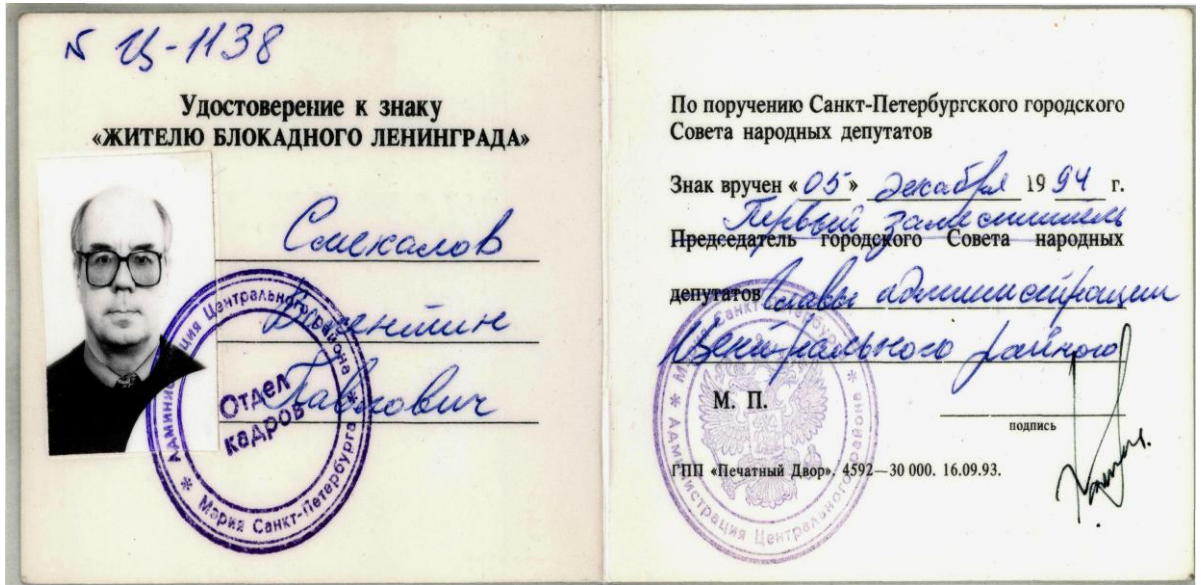 № Ц-1138
Удостоверение к знаку
«ЖИТЕЛЮ БЛОКАДНОГО ЛЕНИНГРАДА»
Смекалов
Валентин
Павлович
Администрация Центрального района
Мэрия Санкт-Петербурга
Отдел
кадров
По поручению Санкт-Петербургского городского
Совета народных депутатов
Знак вручен «05» декабря 1994 г.
Первый заместитель
Председатель городского Совета народных
депутатов главы администрации
Центрального района
М. П.
подпись
ГПП «Печатный Двор». 4592—30 000. 16.09.93.
Санкт-Петербурга
Администрация Центрального района